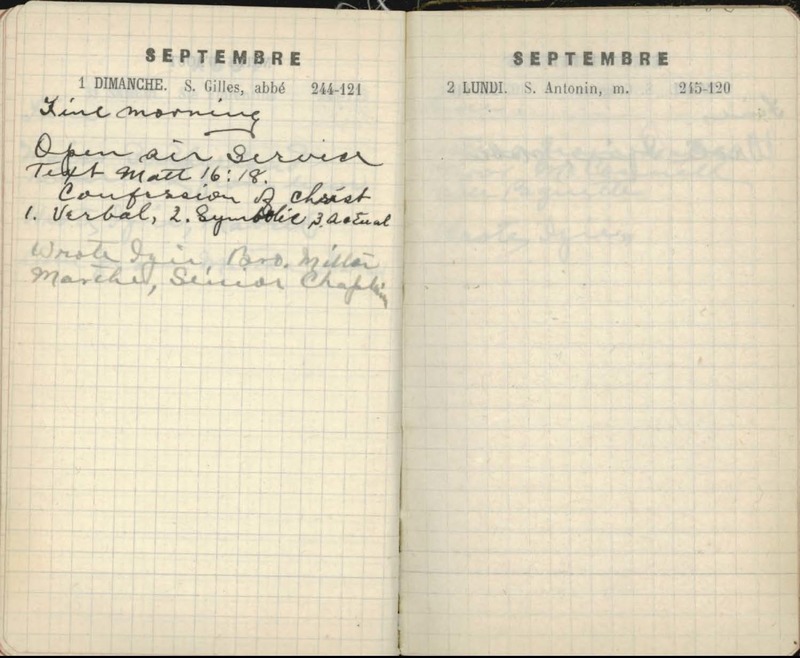 SEPTEMBRE
1 DIMANCHE. S. Gilles, abbé 244-121
Fine morning
Open air Service
Text Matt 16:18.
Confession of Christ
1. Verbal, 2. Symbolic 3. Actual
Wrote Bro. Miller
Senior Chaplin
SEPTEMBRE
2 LUNDI. S. Antonin, m. 245-120